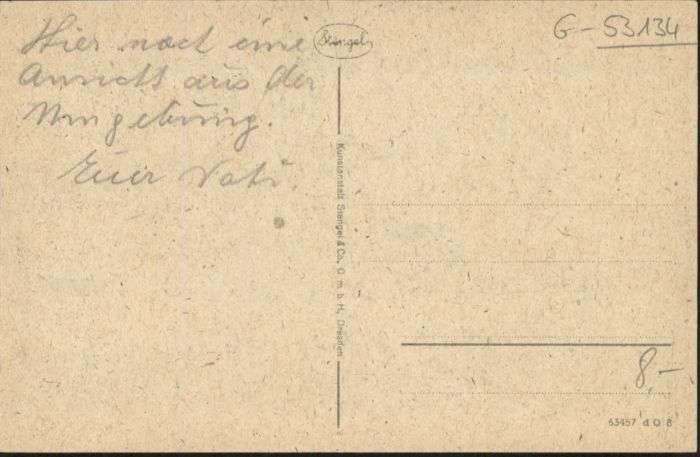 Hier noch eine
Ansicht aus der
Umgebung.
Euer Vati.
Stengel
Kunstanstalt Stengel & Co., G. m. b. H., Dresden
G-53134
8,-
53457 d O 8